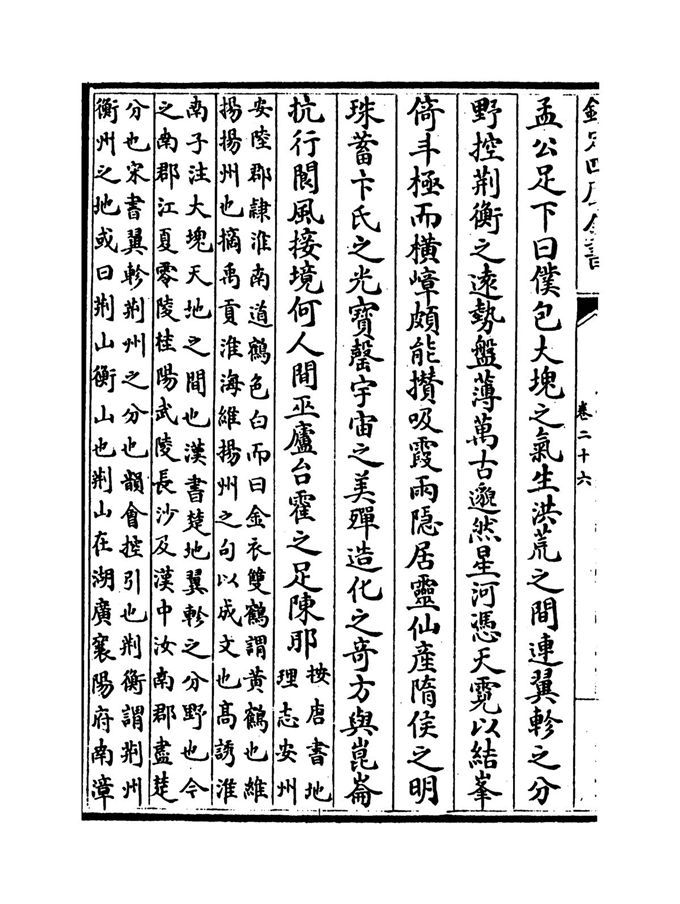 欽定四庫全書
卷二十六
孟公足下曰僕包大塊之氣生洪荒之間連翼軫之分
野控荆衡之逺勢盤薄萬古邈然星河憑天霓以結峯
倚斗極而横嶂頗能攢吸霞雨隱居靈仙産隋侯之明
珠蓄卞氏之光寶罄宇宙之美殫造化之竒方與崑崙
抗行閬風接境何人間巫廬台霍之足陳耶
按唐書地
理志安州
安陸郡隷淮南道鶴色白而曰金衣雙鶴謂黄鶴也維
揚揚州也摘禹貢淮海維揚州之句以成文也髙誘淮
南子注大塊天地之間也漢書楚地翼軫之分野也今
之南郡江夏零陵桂陽武陵長沙及漢中汝南郡盡楚
分也宋書翼軫荆州之分也韻會控引也荆衡謂荆州
衡州之地或曰荆山衡山也荆山在湖廣襄陽府南漳